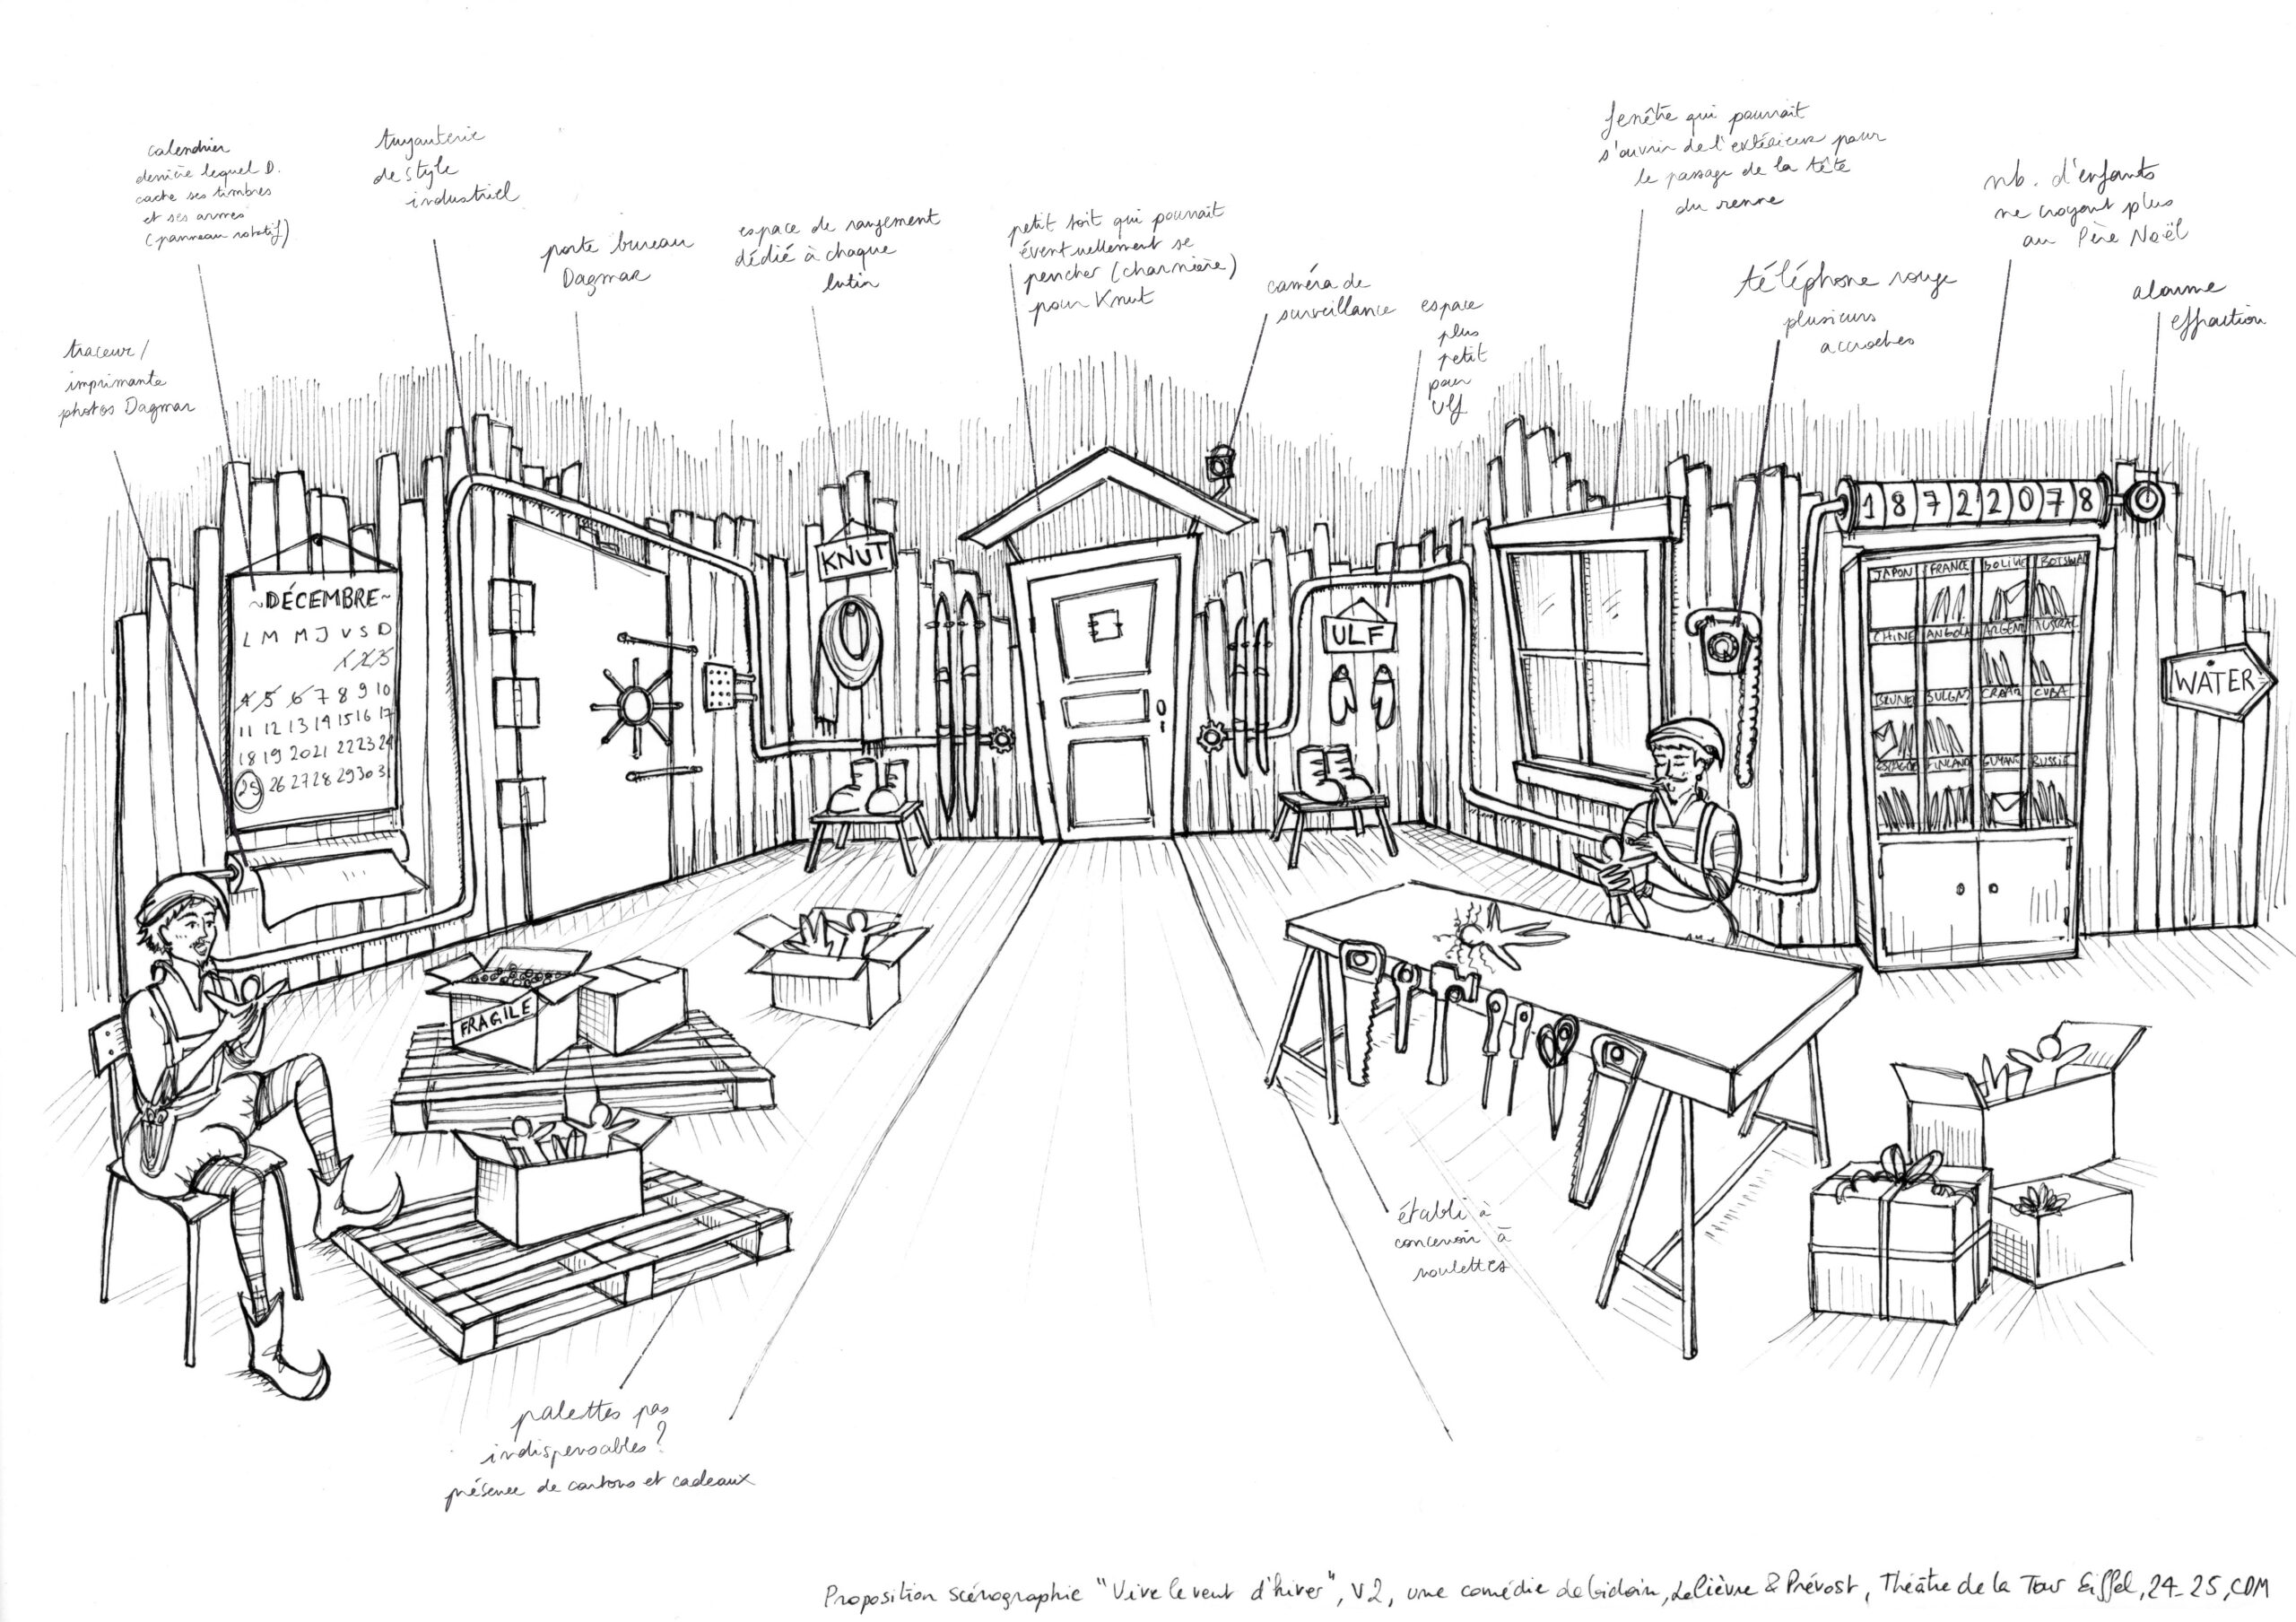 calendrier
derrière lequel D.
cache ses timbres
et ses armes
(panneau rotatif)
tuyauterie
de style
industriel
porte bureau
Dagmar
espace de rangement
dédié à chaque
lutin
petit toit qui pourrait
éventuellement se
pencher (charnière)
pour Knut
caméra de
surveillance
espace
plus
petit
pour
Ulf
fenêtre qui pourrait
s'ouvrir de l'extérieur pour
le passage de la tête
du renne
téléphone rouge
plusieurs
accroches
nb. d'enfants
ne croyant plus
au Père Noël
alarme
effraction
traceur/
imprimante
photos Dagmar
~DÉCEMBRE~
L M M J V S D
1 2 3
4 5 6 7 8 9 10
11 12 13 14 15 16 17
18 19 20 21 22 23 24
25 26 27 28 29 30 31
KNUT
ULF
18722078
JAPON FRANCE BOLIVIE BOTSWA
CHINE ANGOLA ARGENT AUSTRAL
BRUNEI BULGAR CROAT CUBA
ESPAGNE FINLAND GUYANE RUSSIE
WATER
FRAGILE
établi à
concevoir à
roulettes
palettes pas
indispensables?
présence de cartons et cadeaux
Proposition scénographie "Vive le vent d'hiver", V2, une comédie de Gidoin, Lelièvre & Prévost, Théâtre de la Tour Eiffel, 24-25, CDM